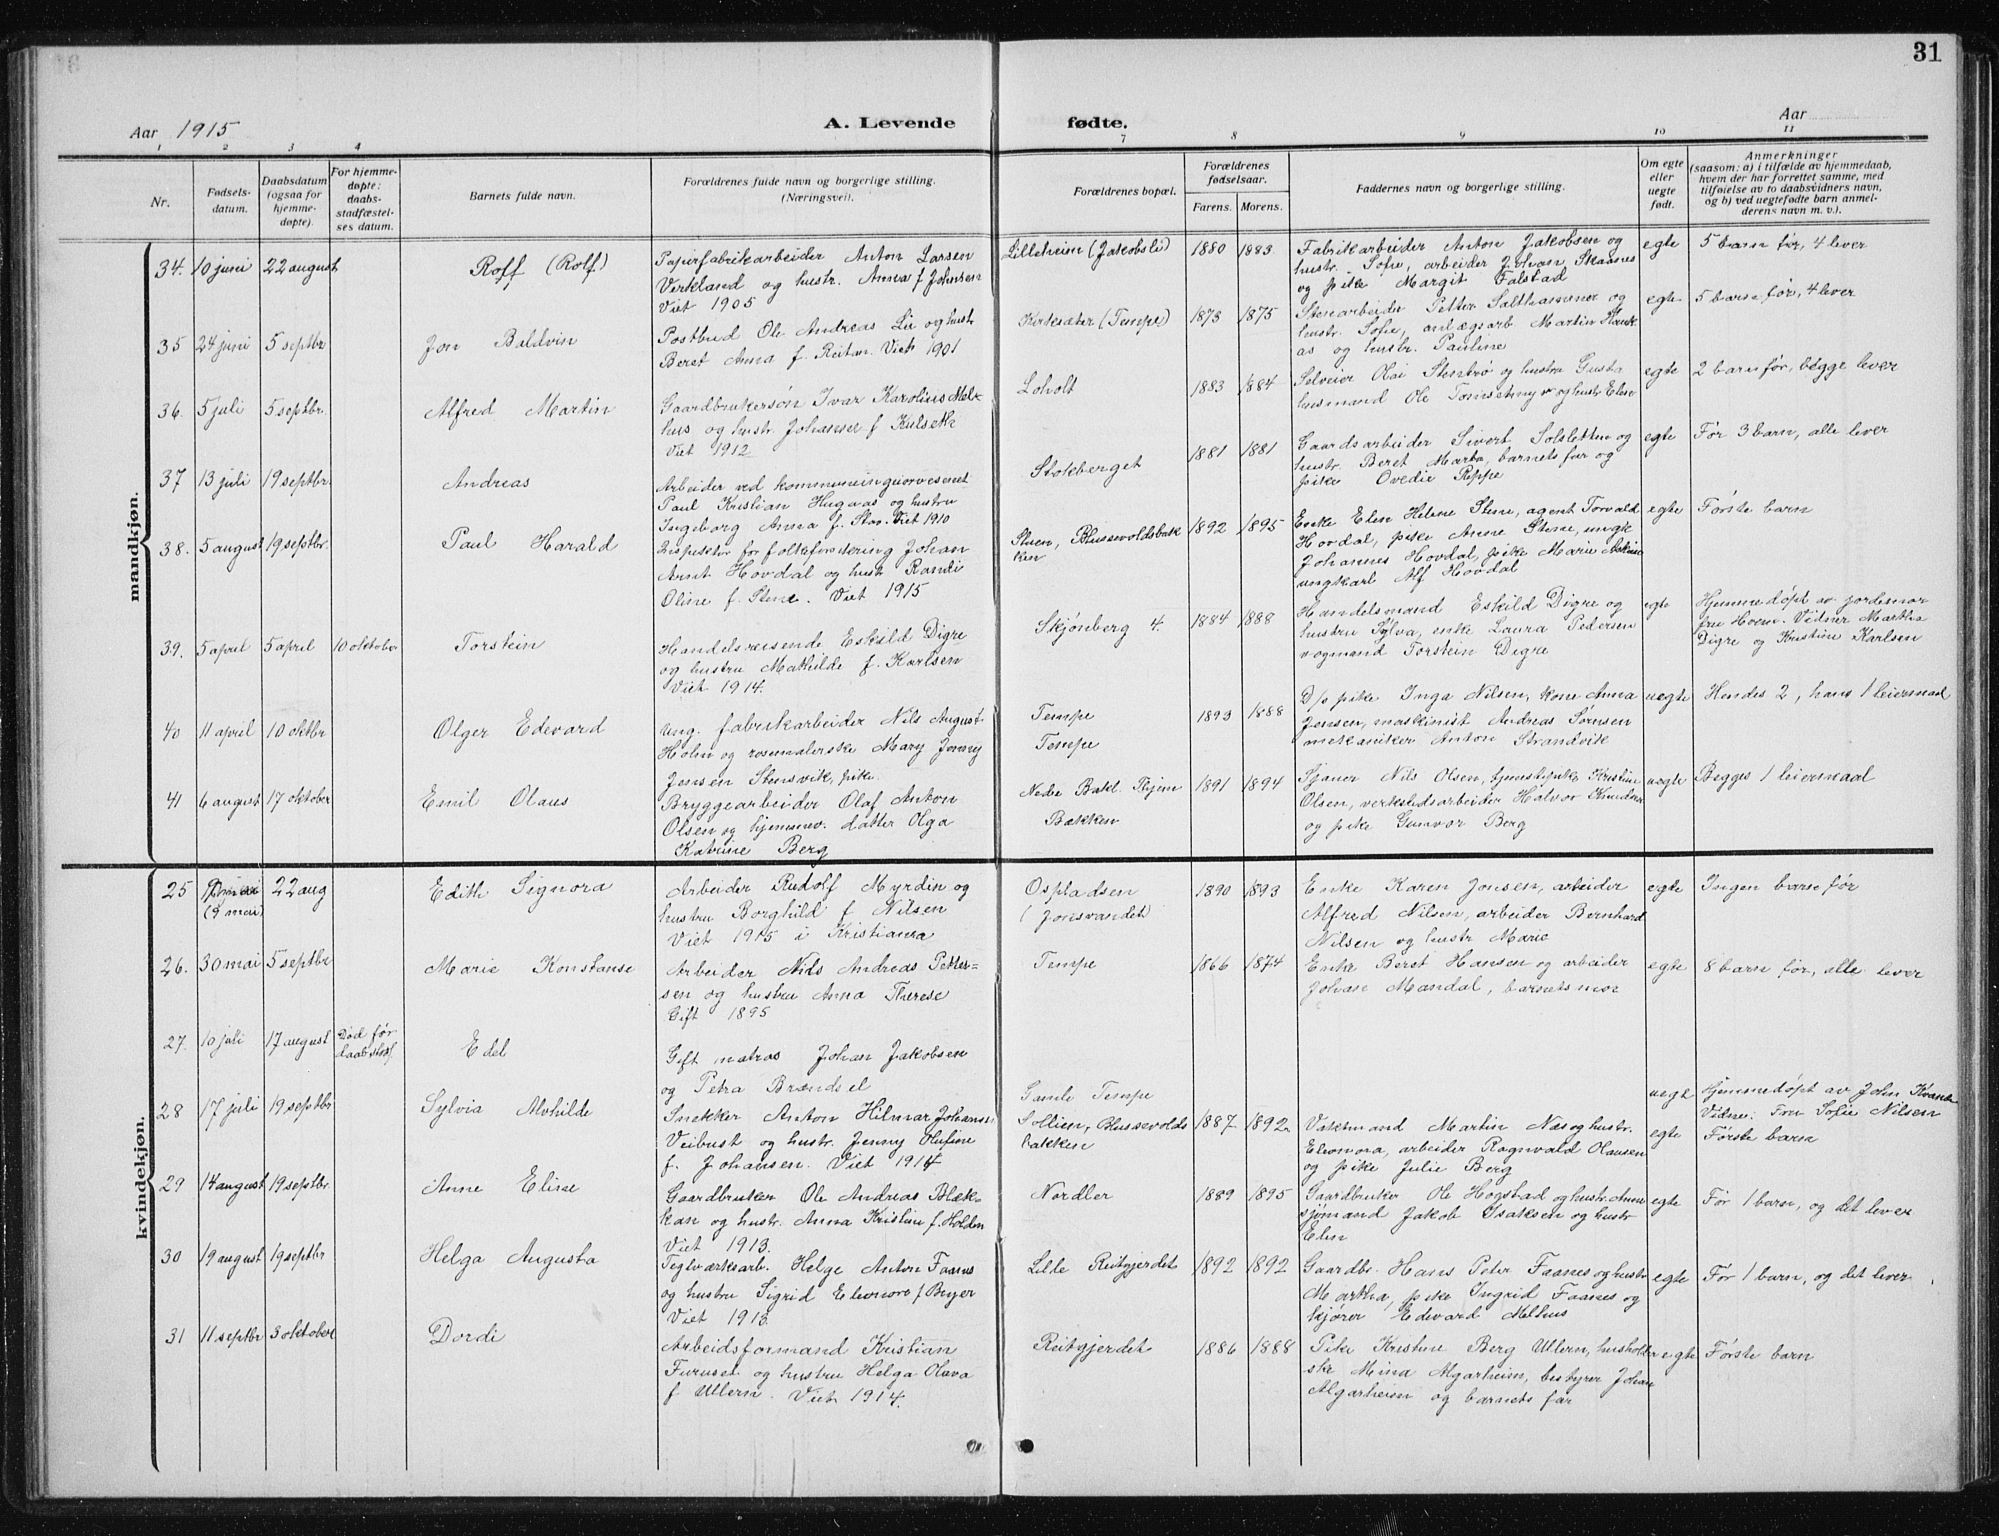 31
Aar 1915
A. Levende
fødte.
Aar
1 2 3 4
7 8 9 10 11
Nr.
Fødsels-
datum.
Daabsdatum
(ogsaa for
hjemme-
døpte).
For hjemme-
døpte:
daabs-
stadfæstel-
ses datum.
Barnets fulde navn.
Forældrenes fulde navn og borgerlige stilling.
(Næringsvei).
Forældrenes bopæl.
Forældrenes
fødselsaar.
Farens. Morens.
Faddernes navn og borgerlige stilling.
Om egte
eller
uegte
født.
Anmerkninger
(saasom: a) i tilfælde av hjemmedaab,
hvem der har forrettet samme, med
tilføielse av to daabsvidners navn,
og b) ved uegtefødte barn anmel-
derens navn m. v.).
mandkjøn.
34. 10 juni 22 august Roff (Rolf)
Papirfabrikarbeider Anton Larsen
Verkland og hustr. Anna f Johnsen
Viet 1905
Lilleheim (Jakobsli) 1880 1883
Fabrikarbeider Anton Jakobsen og
hustr. Sofie, arbeider Johan Skaanes
og pike Margit Falstad
egte 5 barn før, 4 lever
35 24 juni 5 septbr Jon Baldvin
Postbud Ole Andreas Lie og hustr
Beret Anna f. Reitan. Viet 1901
Kirksæter (Tempe) 1873 1875
Stenarbeider Petter Salthammer og
hustr. Sofie, anlægsarb Martin
as og hustr. Pauline
egte 5 barn før, 4 lever
36. 5 juli 5 septbr. Alfred Martin
Gaardbrukersøn Ivar Karolius Mel-
hus og hustr. Johanna f Kulseth
Viet 1912
Loholt 1883 1884
Selveier Olai Stentrø og hustru Gusta
husmand Ole Tomsetmyr og hustr Elen
egte 2 barn før, begge lever
37 13 juli 19 septbr. Andreas
Arbeider ved kommuneingniorvesenet
Paul Kristian Hugaas og hustru
Ingeborg Anna f. Stav. Viet 1910
Stokberget 1881 1881
Gaardsarbeider Sivert Solsletten og
hustr. Beret Marta, barnets far og
pike Ovedie Reppe
egte Før 3 barn, alle lever
38. 5 august 19 septbr. Paul Harald
Inspektør for folkeforsikring Johan
Arnt Hovdal og hustr Randi
Oline f. Stene. Viet 1915
Stuen, Blussevoldsbak
ken
1892 1895
Enke Elen Helene Stene, agent Torvald
Hovdal, pike Anne Stene, ungk
Johannes Hovdal, pike Marie
ungkarl Alf Hovdal
egte Første barn
39. 5 april 5 april 10 oktober Torstein
Handelsreisende Eskild Digre
og hustru Mathilde f. Karlsen
Viet 1914.
Skjønberg 4. 1884 1888
Handelsmand Eskild Digre og
hustru Sylva, enke Laura Pedersen
vogmand Torstein Digre
egte Hjemmedøpt av jordemor
fru Hoem. Vidner Martha
Digre og Kristine Karlsen
40 11 april 10 oktbr Olger Edevard
Ung. fabrikarbeider Nils August
Holm og rosemalerske Mary Jenny
Jensen Stensvik, pike.
Tempe
Tempe
1893 1888
D/o pike Inga Nilsen, kone Anna
Jensen, maskinist Andreas Sørnsen
mekaniker Anton Strandvik
uegte Hendes 2, hans 1 leiermaal
41 6 august 17 oktober Emil Olaus
Bryggearbeider Olaf Anton
Olsen og hjemmev. datter Olga
Katrine Berg
Nedre Bakl.
Bakken
1891 1894
Sjauer Nils Olsen, tjenestepike Kristine
Olsen, verkstedsarbeider Halvor Knudsen
og pike Gunvor Berg
uegte Begges 1 leiermaal
kvindekjøn.
25 (9 mai) 22 aug Edith Signora
Arbeider Rudolf Myrdin og
hustru Borghild f Nilsen
Viet 1915 i Kristiania
Ospladsen
(Jonsvandet)
1890 1893
Enke Karen Jonsen, arbeider
Alfred Nilsen, arbeider Bernhard
Nilsen og hustr Marie
egte Ingen barn før
26. 30 mai 5 septbr Marie Konstanse
Arbeider Nils Andreas Petter-
sen og hustru Anna Therese
Gift 1895
Tempe 1866 1874
Enke Beret Hansen og arbeider
Johan Mandal, barnets mor
egte 8 barn før, alle lever
27. 10 juli 17 august Død før
daabstadf. Edel
Gift matros Johan Jakobsen
og Petra Brændsel
Gamle Tempe
uegt Hjemmedøpt av John
Vidne: Fru Sofie Nilsen
28 17 juli 19 septbr Sylvia Alvhilde
Snekker Anton Hilmar Johansn
Veibust og hustr. Jenny Olufine
f. Johansen. Viet 1914
Sollien, Blussevolds
bakken
1887 1892
Vaktmand Martin Næs og hustr.
Eleonora, arbeider Ragnvald Olausen
og pike Julie Berg
egte Første barn
29 14 august 19 septbr. Anne Eline
Gaardbruker Ole Andreas Blæk-
kan og hustr. Anna Kristine f. Holden
Viet 1913.
Nordler 1889 1895
Gaardbruker Ole Hogstad og hustr. Anne
sjømand Jakob Isaksen og hustr
Elen
egte Før 1 barn, og det lever
30 19 august 19 septbr Helga Augusta
Teglværksarb. Helge Anton Faanes
og hustru Sigrid Eleonore f Bryer
Viet 1913.
Lille Reitgjerdet 1892 1892
Gaardbr. Hans Peter Faanes og hustr
Martha, pike Ingrid Faanes og
kjører Edevard Melhus
egte Før 1 barn, og det lever
31 11 septbr 3 oktober Dordi
Arbeidsformand Kristian
Furuset og hustru Helga Olava
f Ullern. Viet 1914.
Reitgjerdet 1886 1888
Pike Kristine Berg Ullern, husholder
ske Mina Algarheim, bestyrer Johan
Algarheim og barnets far
egte Første barn